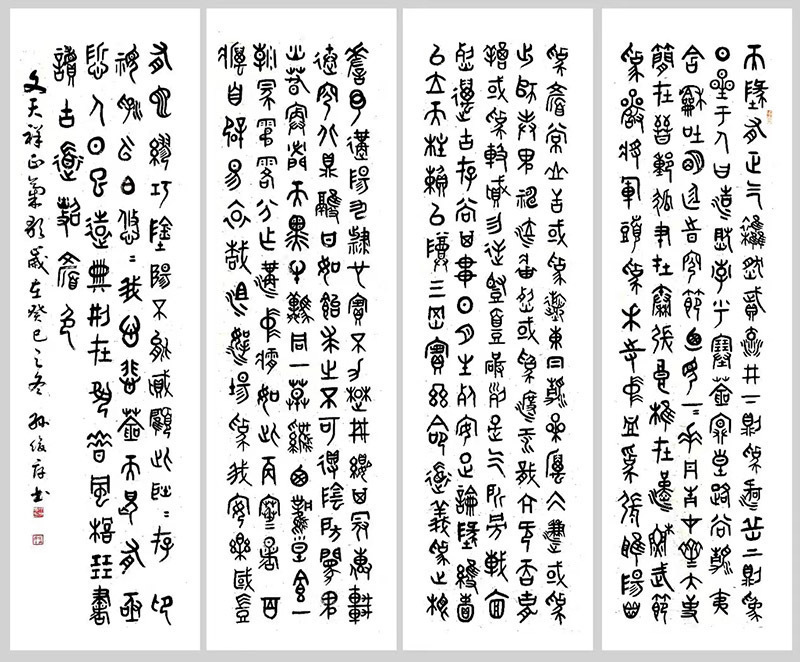 天地有正氣雜然賦流形下則為河嶽上則為
日星於人曰浩然沛乎塞蒼冥皇路當清夷
含和吐明庭時窮節乃見一一垂丹青在齊太史
簡在晉董狐筆在秦張良椎在漢蘇武節
為嚴將軍頭為嵇侍中血為張睢陽齒
為顏常山舌或為遼東帽清操厲冰雪或為
出師表鬼神泣壯烈或為渡江楫慷慨吞胡
羯或為擊賊笏逆豎頭破裂是氣所磅礴凜
烈萬古存當其貫日月生死安足論地維賴
以立天柱賴以尊三綱實繫命道義為之根
嗟予遘陽九隸也實不力楚囚纓其冠傳車
送窮北鼎鑊甘如飴求之不可得陰房闃鬼
火春院閟天黑牛驥同一皂雞棲鳳凰食一
朝蒙霧露分作溝中瘠如此再寒暑百
癘自辟易哀哉沮洳場為我安樂國豈
有他繆巧陰陽不能賊顧此耿耿存仰
視浮雲白悠悠我心悲蒼天曷有極
哲人日已遠典刑在夙昔風檐展書
讀古道照顏色
文天祥正氣歌歲在癸巳之冬孫俊書